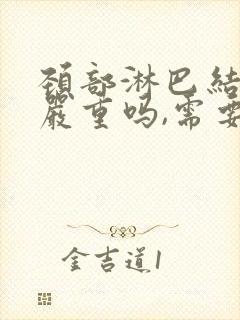 颈部淋巴结
严重吗,需要
金吉道1